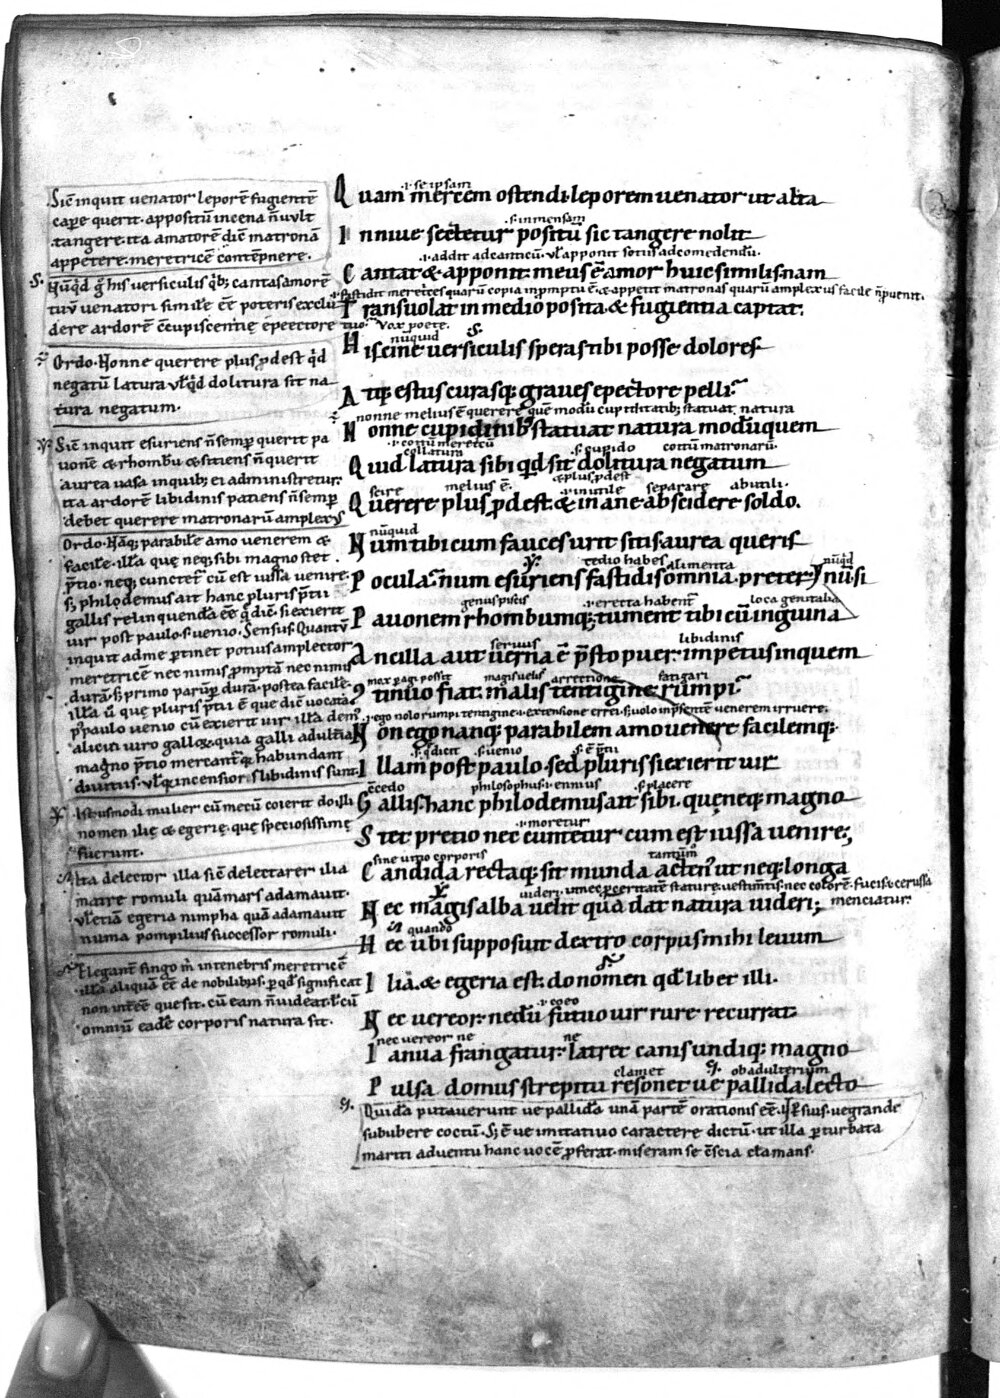 Sic̄ inquit uenator leporē fugientē
cap̄e querit. appositū incena n̄ uult
tangere. ita amatorē dic̄ matronā
appetere. meretricē contēpnere.
Qūqd ḡ his uersiculis q̇b; cantas amorē
tuū uenatori simile ēē poteris exclu
dere ardorē c̄cupiscentię epectore tuo.
Ordo. Nonne querere plus p̄dest q̇d
negatū latura ul̄ q̇d dolitura sit na
tura negatum.
Sic̄ inquit esuriens n̄ semp̄ querit pa
uonē & rhombū & sitiens n̄ querit
aurea uasa inquib; ei administretur.
ita ardorē libidinis patiens n̄ semp̄
debet querere matronarū amplexus
Ordo. Nāq; parabilē amo uenerem &
facilē. illā quę neq; sibi magno stet
p̄tio. neq; cunctet̄ cū est iussa uenire.
S; philodemus ait hanc pluris p̄tii
gallis relinquendā ēē q̄ dic̄. si exierit
uir post paulo. s. uenio. Sensus. Quantū
inquit adme p̄tinet potius amplector
meretricē nec nimis p̄mptā nec nimis
durā. s; primo parūp̄ durā. postea facilē.
illā ū quę pluris p̄tii ē que dic̄ uocata
p̄ paulo uenio cū exierit uir illā demꝰ
alicui uiro gallo. & quia galli adultia
magno p̄tio mercant̄. q; habundant
diuitiis. ul̄ q; incensiores libidinis sunt.
Istiusmodi mulier cū mecū coierit do illi
nomen ilię & egerię. quę speciosissimę
fuerunt.
Ita delector illa sic̄ delectarer ilia
matre romuli quā mars adamauit.
ul̄ etiā egeria nimpha quā adamauit
numa pompilius successor romuli.
Eleganī fingo m̄ intenebris meretricē
illā aliquā ēē de nobilibus. p̄ qd̄ significat
non intēē que sit. cū eam n̄ uideat. l̄ cū
omniū eadē corporis natura sit.
.i. se ipsam
Quam mercem ostendi. leporem uenator ut alta
.s. in mensam
In niue sectetur positū sic tangere nolit
.i. addit ad canticū. ul̄ apponit totus adcomedendū.
Cantat & apponit. meus ē amor huic similis. nam
.i. fastidit meretrices quarū copia inpromptu ē. & appetit matronas quarū amplexus facile n̄ puenit.
Transuolat in medio posita. & fugientia captat.
Vox poete.
nūquid
Hiscine uersiculis speras tibi posse dolores
Atq; estus curasq; graues epectore pelli.
nonne melius ē querere quē modū cupiditatib; statuat natura
Nonne cupidinib; statuat natura modū quem
.i. coitū meretricū
collatura s. cupido coitū matronarū.
Quid latura sibi qd̄ sit dolitura negatum
scire melius ē. & plus p̄dest .i. inutile separare abutili.
Querere plus p̄dest. & inane abscidere soldo.
nūquid
Num tibi cum fauces urit sitis aurea queris
tedio habes alimenta nūq̇d
Pocula. num esuriens fastidis omnia preter nū si
genus piscis .i. erecta habent̄ loca genitalia
Pauonem rhombumq; tument tibi cū inguina
seruus libidinis
Ancilla aut uerna ē p̄sto puer. impetus inquem
mox peragi possit magis uelis arrectione fatigari
9tinuo fiat. malis tentigine rumpi.
.i. ego nolo rumpi tentigine .i. extensione ... s; uolo inp̄sentē uenerem irruere.
Non ego nanq; parabilem amo uenerē facilemq;
.s. q̄ dicit .s. uenio .s. ē p̄tii
Illam post paulo. sed pluris si exierit uir
c̄cedo philosophus .i. ennius .s. placere
Gallis. hanc philodemus ait sibi. quę neq; magno
.i. moretur
Stet precio nec cunctetur cum est iussa uenire;
sine uitio corporis tantūm
Candida rectaq; sit munda actenꝰ ut neq; longa
uideri. ut nec pceritatē staturę uestimtis. nec colorē. fucis. & cerussa
Nec magis alba uelit quā dat natura uideri; menciatur.
quando
Hec ubi supposuit dextro corpus mihi leuum
Iliā. & egeria est. do nomen qd̄ liber illi.
.i. coeo
Nec uereor. nedū futuo uir rure recurrat
nec uereor ne ne
Ianua frangatur. latret canis undiq; magno
clamet ob adulterium
Pulsa domus strepitu resonet ue pallida lecto
Quidā putauerunt ue pallida unā partē orationis ēē. ut p̄sius. uegrande
sububere coctū. S; ē ue imitatiuo caractere dictū. ut illa p̄turbata
mariti aduentu hanc uocē p̄ferat. miseram se c̄scia clamans.